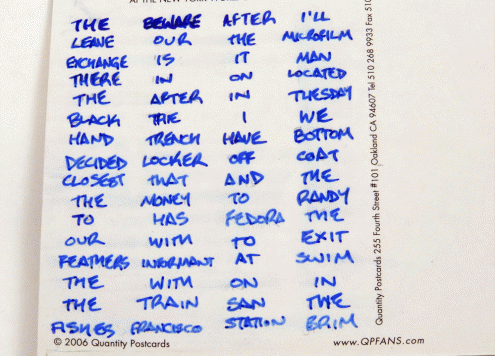 THE BEWARE AFTER I'LL
LEAVE OUR THE MICROFILM
EXCHANGE IS IT MAN
THERE IN ON LOCATED
THE AFTER IN TUESDAY
BLACK THE I WE
HAND TRENCH HAVE BOTTOM
DECIDED LOCKER OFF COAT
CLOSEST THAT AND THE
THE MONEY TO RANDY
TO HAS FEDORA THE
OUR WITH TO EXIT
FEATHERS INFORMANT AT SWIM
THE WITH ON IN
THE TRAIN SAN THE
FISHES FRANCISCO STATION BRIM
© 2006 Quantity Postcards
www.QPFANS.com
Quantity Postcards 255 Fourth Street #101 Oakland CA 94607 Tel 510 268 9933 Fax 510